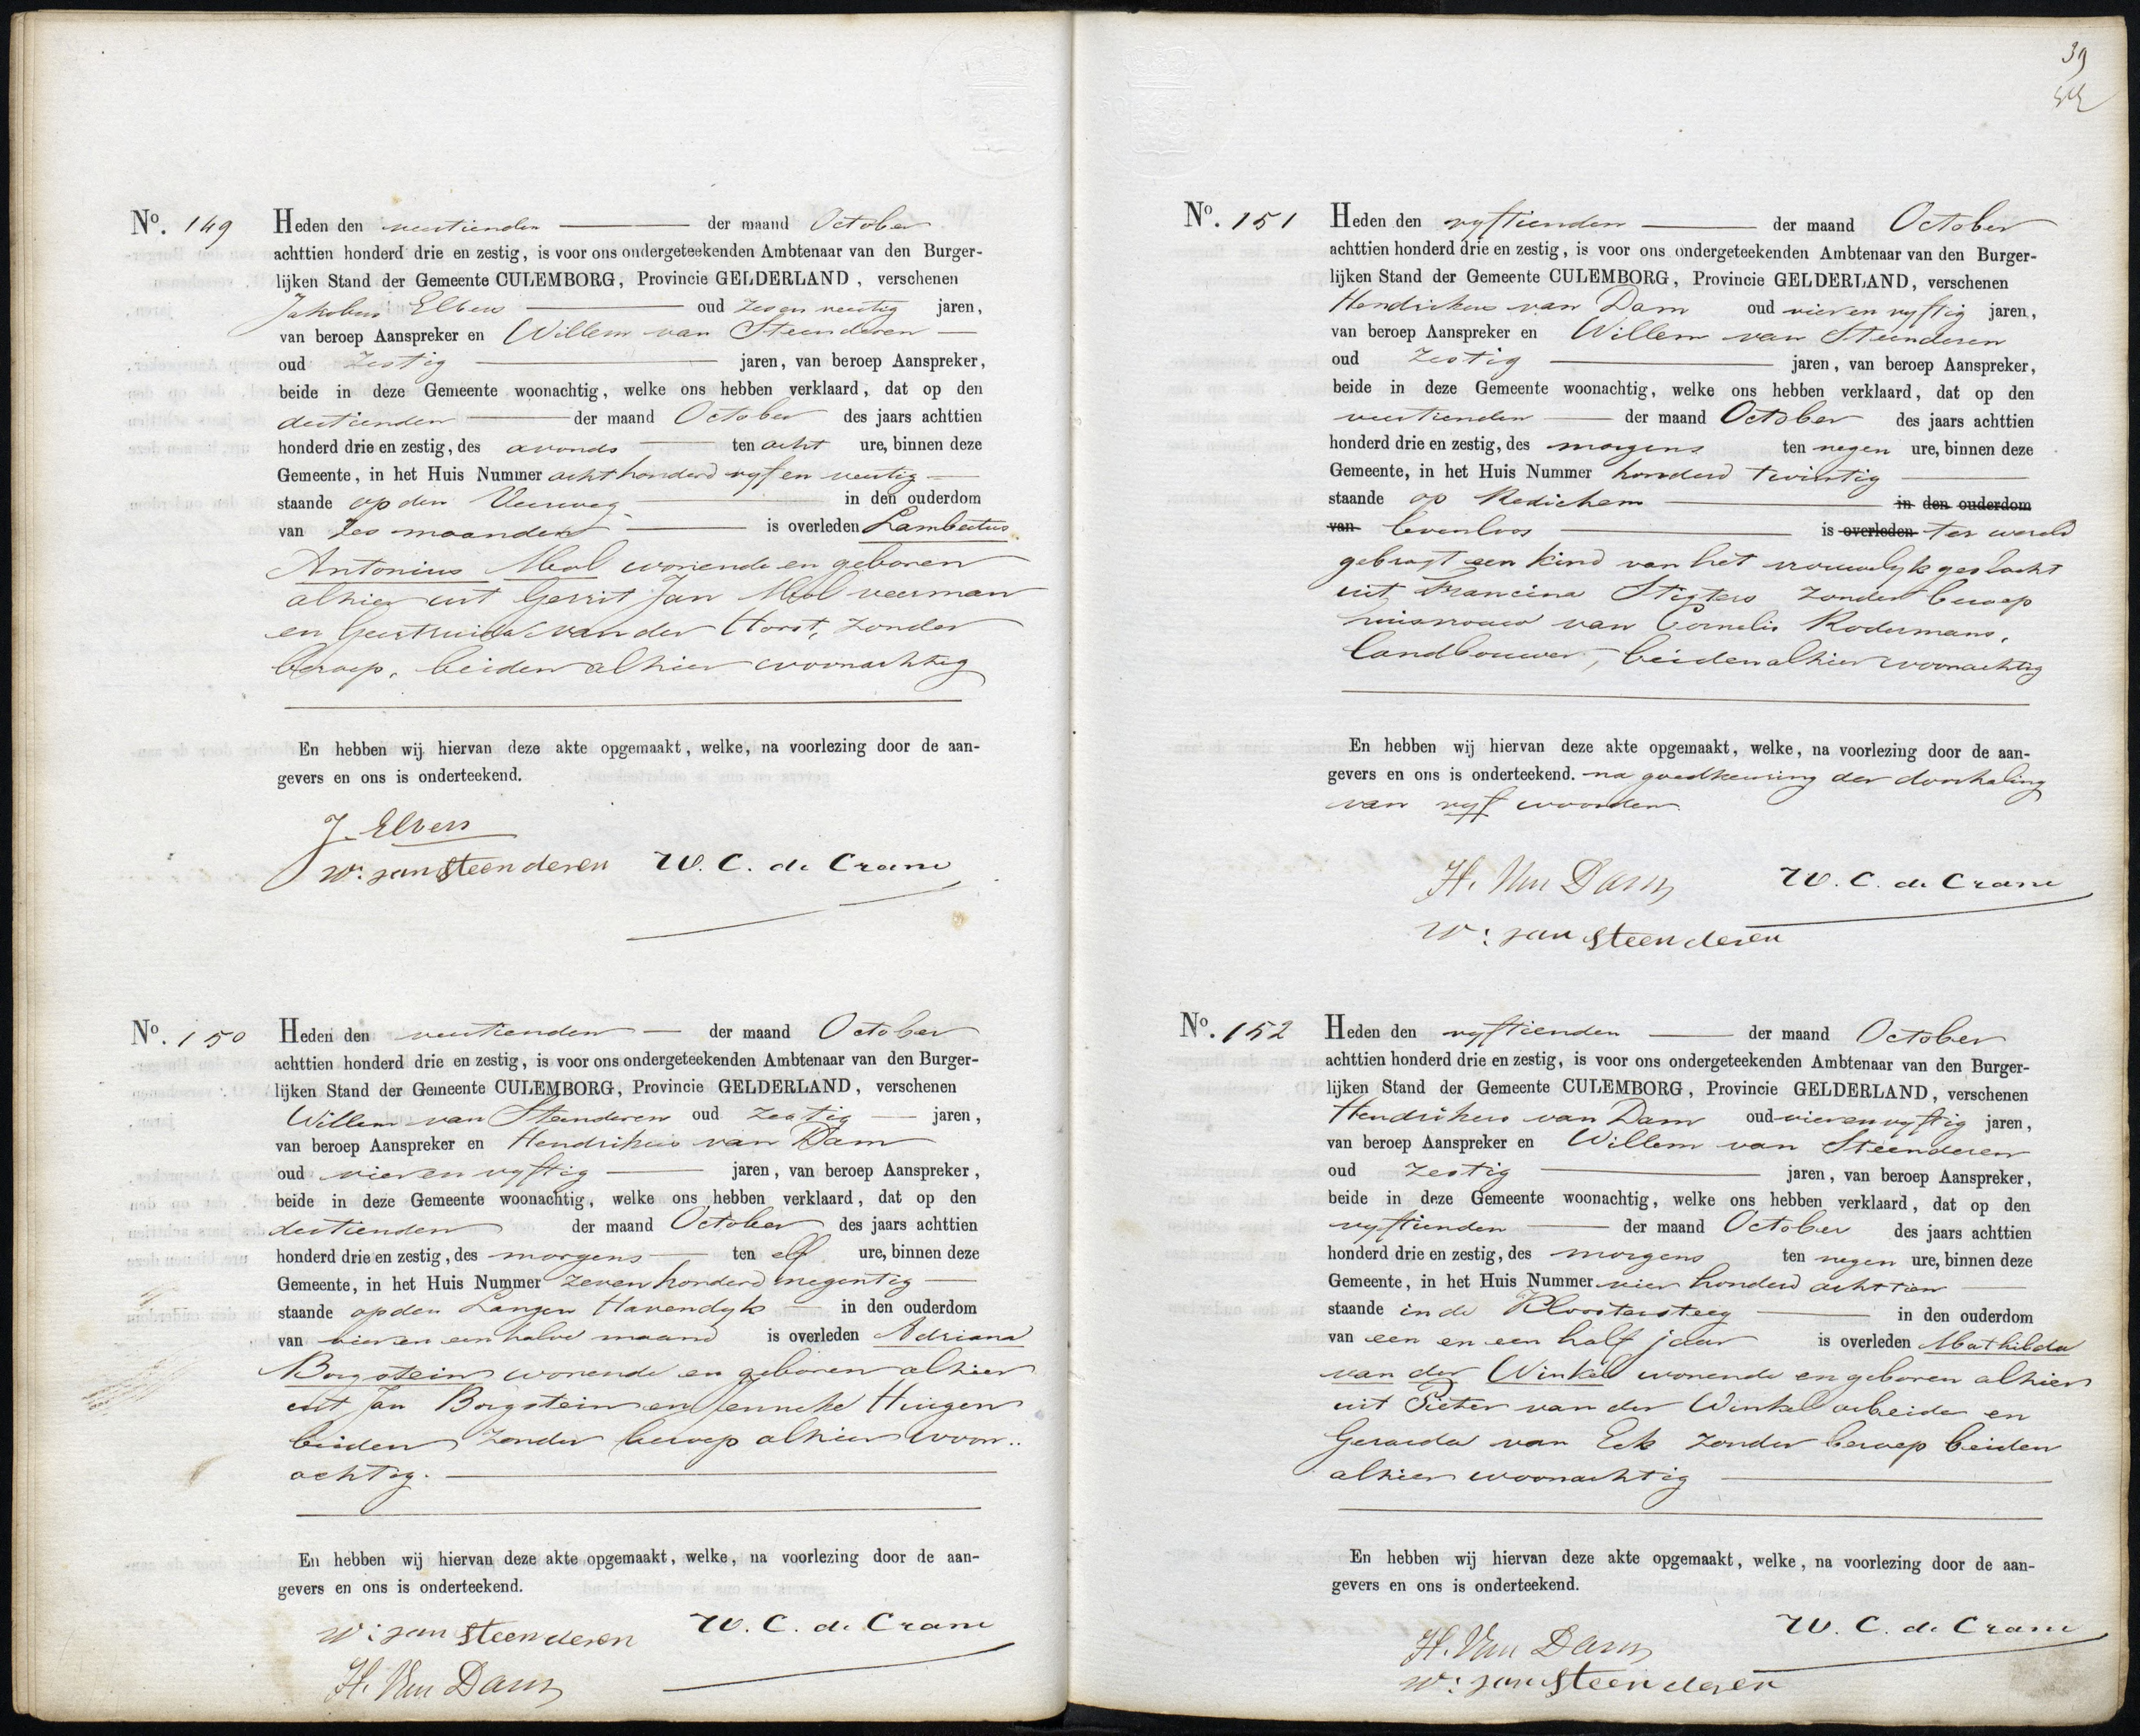 No. 149 Heden den veertienden der maand October
achttien honderd drie en zestig, is voor ons ondergeteekenden Ambtenaar van den Burger-
lijken Stand der Gemeente CULEMBORG, Provincie GELDERLAND, verschenen
Jakobus Elbers oud zes en veertig jaren,
van beroep Aanspreker en Willem van Steenderen
oud zestig jaren, van beroep Aanspreker,
beide in deze Gemeente woonachtig, welke ons hebben verklaard, dat op den
dertienden der maand October des jaars achttien
honderd drie en zestig, des avonds ten acht ure, binnen deze
Gemeente, in het Huis Nummer acht honderd vyf en veertig
staande op den Veerweg in den ouderdom
van zes maanden is overleden Lambertus
Antonius Mol wonende en geboren
alhier uit Gerrit Jan Mol veerman
en Geertruida van der Horst, zonder
beroep, beiden alhier woonachtig
En hebben wij hiervan deze akte opgemaakt, welke, na voorlezing door de aan-
gevers en ons is onderteekend.
J. Elbers
W: van Steenderen W. C. de Crane
No. 150 Heden den veertienden der maand October
achttien honderd drie en zestig, is voor ons ondergeteekenden Ambtenaar van den Burger-
lijken Stand der Gemeente CULEMBORG, Provincie GELDERLAND, verschenen
Willem van Steenderen oud zestig jaren,
van beroep Aanspreker en Hendrikus van Dam
oud vier en vyftig jaren, van beroep Aanspreker,
beide in deze Gemeente woonachtig, welke ons hebben verklaard, dat op den
dertienden der maand October des jaars achttien
honderd drie en zestig, des morgens ten elf ure, binnen deze
Gemeente, in het Huis Nummer zeven honderd negentig
staande op den Langen Havendyk in den ouderdom
van vier en een halve maand is overleden Adriana
Borgstein wonende en geboren alhier
uit Jan Borgstein en Jenneke Huigen
beiden zonder beroep alhier woon..
achtig.
En hebben wij hiervan deze akte opgemaakt, welke, na voorlezing door de aan-
gevers en ons is onderteekend.
W: van Steenderen W. C. de Crane
H. Van Dam
39
No. 151 Heden den vyftienden der maand October
achttien honderd drie en zestig, is voor ons ondergeteekenden Ambtenaar van den Burger-
lijken Stand der Gemeente CULEMBORG, Provincie GELDERLAND, verschenen
Hendrikus van Dam oud vier en vyftig jaren,
van beroep Aanspreker en Willem van Steenderen
oud zestig jaren, van beroep Aanspreker,
beide in deze Gemeente woonachtig, welke ons hebben verklaard, dat op den
veertienden der maand October des jaars achttien
honderd drie en zestig, des morgens ten negen ure, binnen deze
Gemeente, in het Huis Nummer honderd twintig
staande op Redichem in den ouderdom
van levenloos is overleden ter wereld
gebragt een kind van het vrouwelyk geslacht
uit Francina Stigters zonder beroep
huisvrouw van Cornelis Rodermans,
landbouwer, beiden alhier woonachtig
En hebben wij hiervan deze akte opgemaakt, welke, na voorlezing door de aan-
gevers en ons is onderteekend. na goedkeuring der doorhaling
van vyf woorden.
H. Van Dam W. C. de Crane
W: van Steenderen
No. 152 Heden den vyftienden der maand October
achttien honderd drie en zestig, is voor ons ondergeteekenden Ambtenaar van den Burger-
lijken Stand der Gemeente CULEMBORG, Provincie GELDERLAND, verschenen
Hendrikus van Dam oud vier en vyftig jaren,
van beroep Aanspreker en Willem van Steenderen
oud zestig jaren, van beroep Aanspreker,
beide in deze Gemeente woonachtig, welke ons hebben verklaard, dat op den
vyftienden der maand October des jaars achttien
honderd drie en zestig, des morgens ten negen ure, binnen deze
Gemeente, in het Huis Nummer vier honderd achttien
staande in de Kloostersteeg in den ouderdom
van een en een half jaar is overleden Mathilda
van der Winkel wonende en geboren alhier
uit Pieter van der Winkel arbeider en
Gerarda van Eck zonder beroep beiden
alhier woonachtig
En hebben wij hiervan deze akte opgemaakt, welke, na voorlezing door de aan-
gevers en ons is onderteekend.
H. Van Dam W. C. de Crane
W: van Steenderen